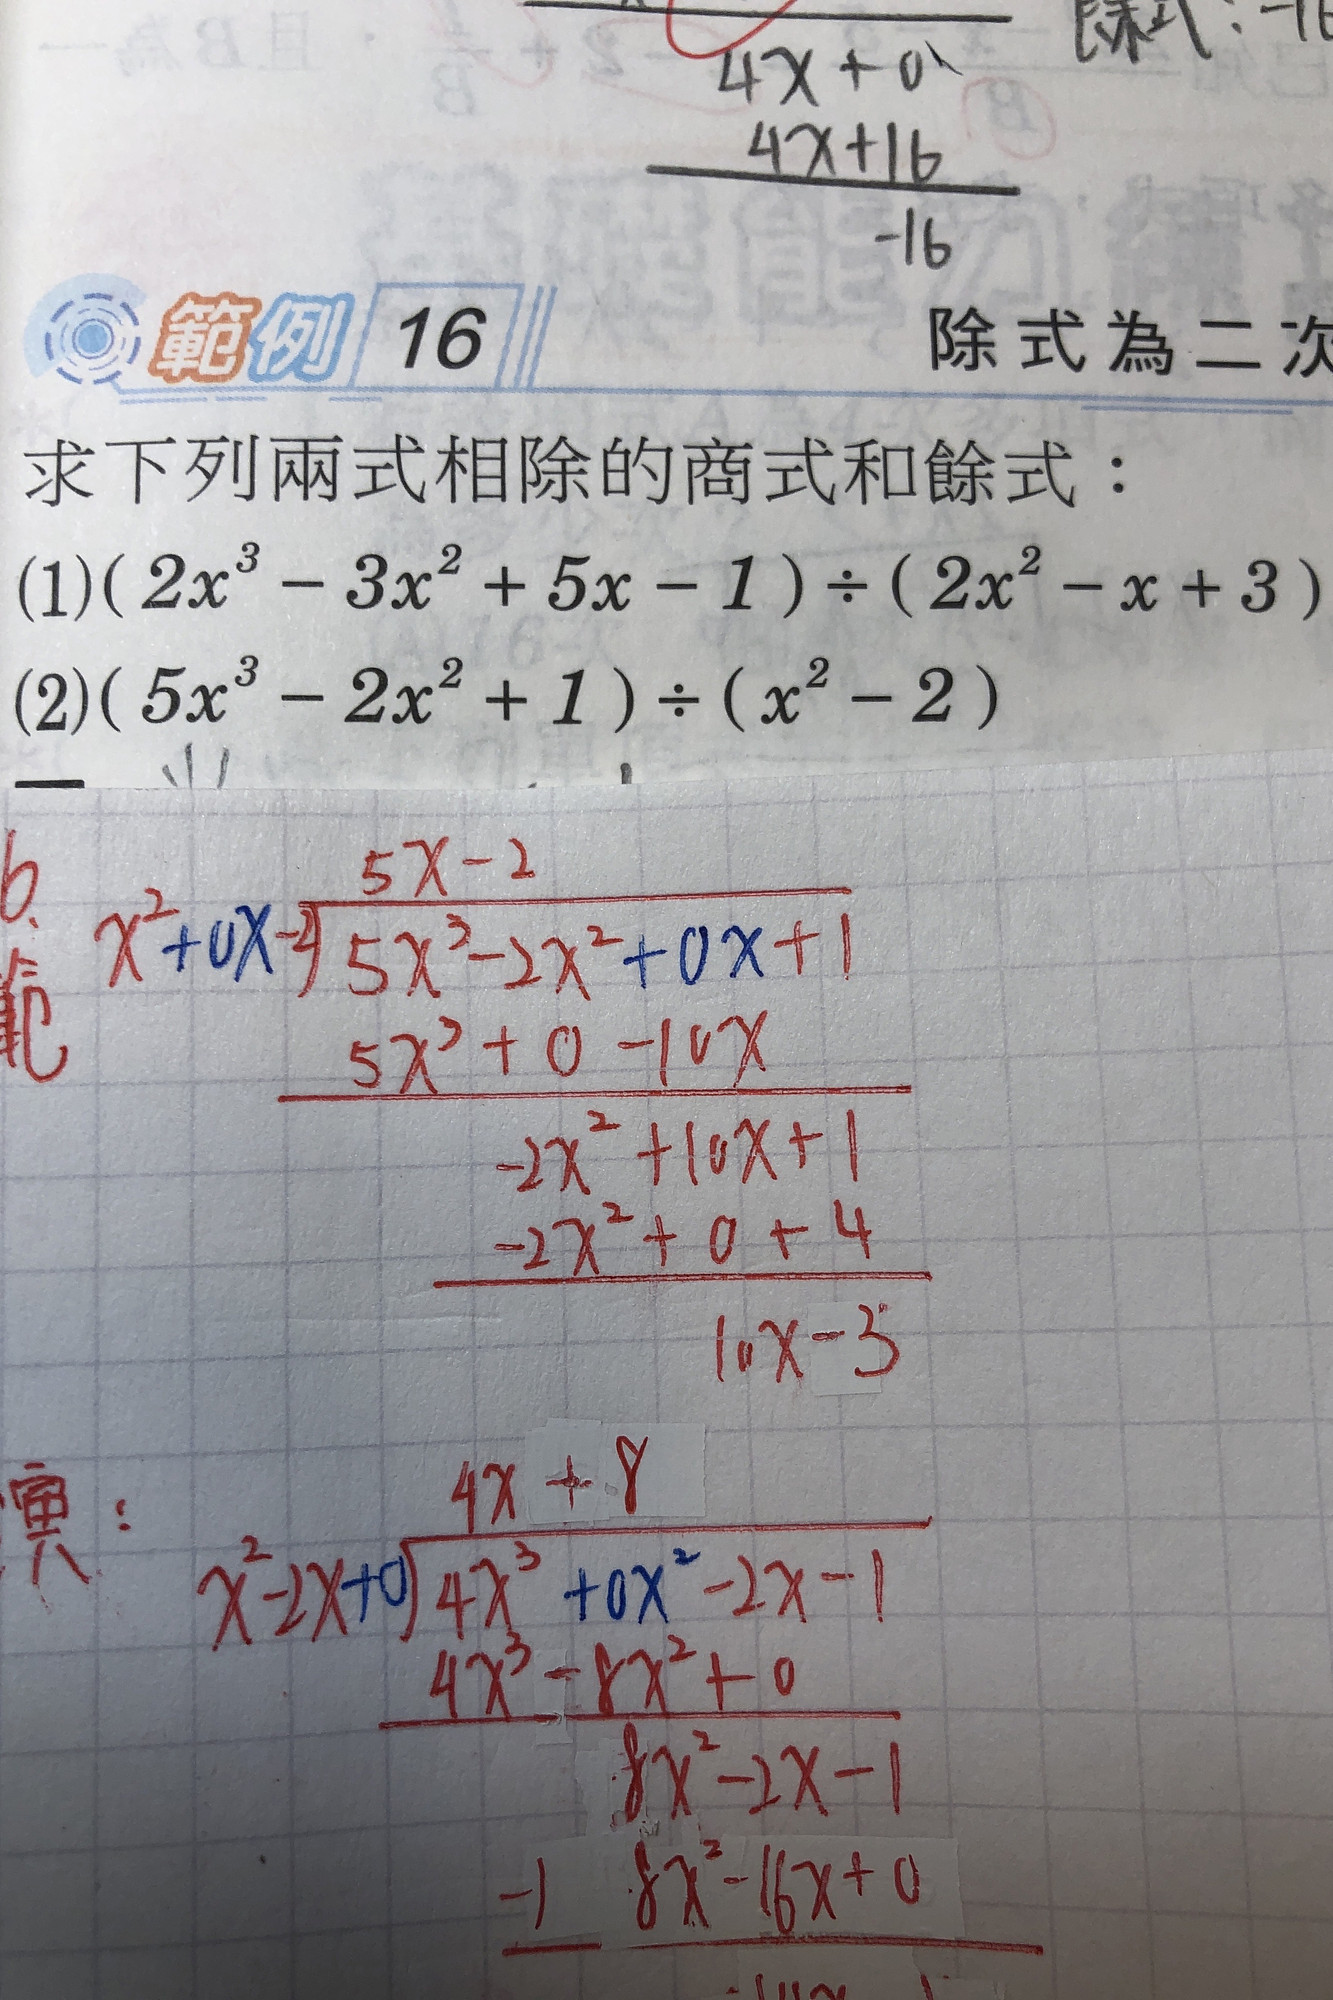 除式:-16
4x+0
4x+16
-16
範例 16 除式為二次
求下列兩式相除的商式和餘式：
(1)(2x³－3x²＋5x－1)÷(2x²－x＋3)
(2)(5x³－2x²＋1)÷(x²－2)
5x-2
x²+0x-2)5x³-2x²+0x+1
範 5x³+0-10x
-2x²+10x+1
-2x²+0+4
10x-3
4x+8
演：
x²-2x+0)4x³+0x²-2x-1
4x³-8x²+0
8x²-2x-1
-1 8x²-16x+0